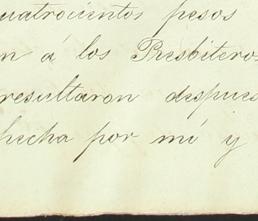 uatrocientos pesos
n á los Presbiteros
resultaron despues
hecha por mí y